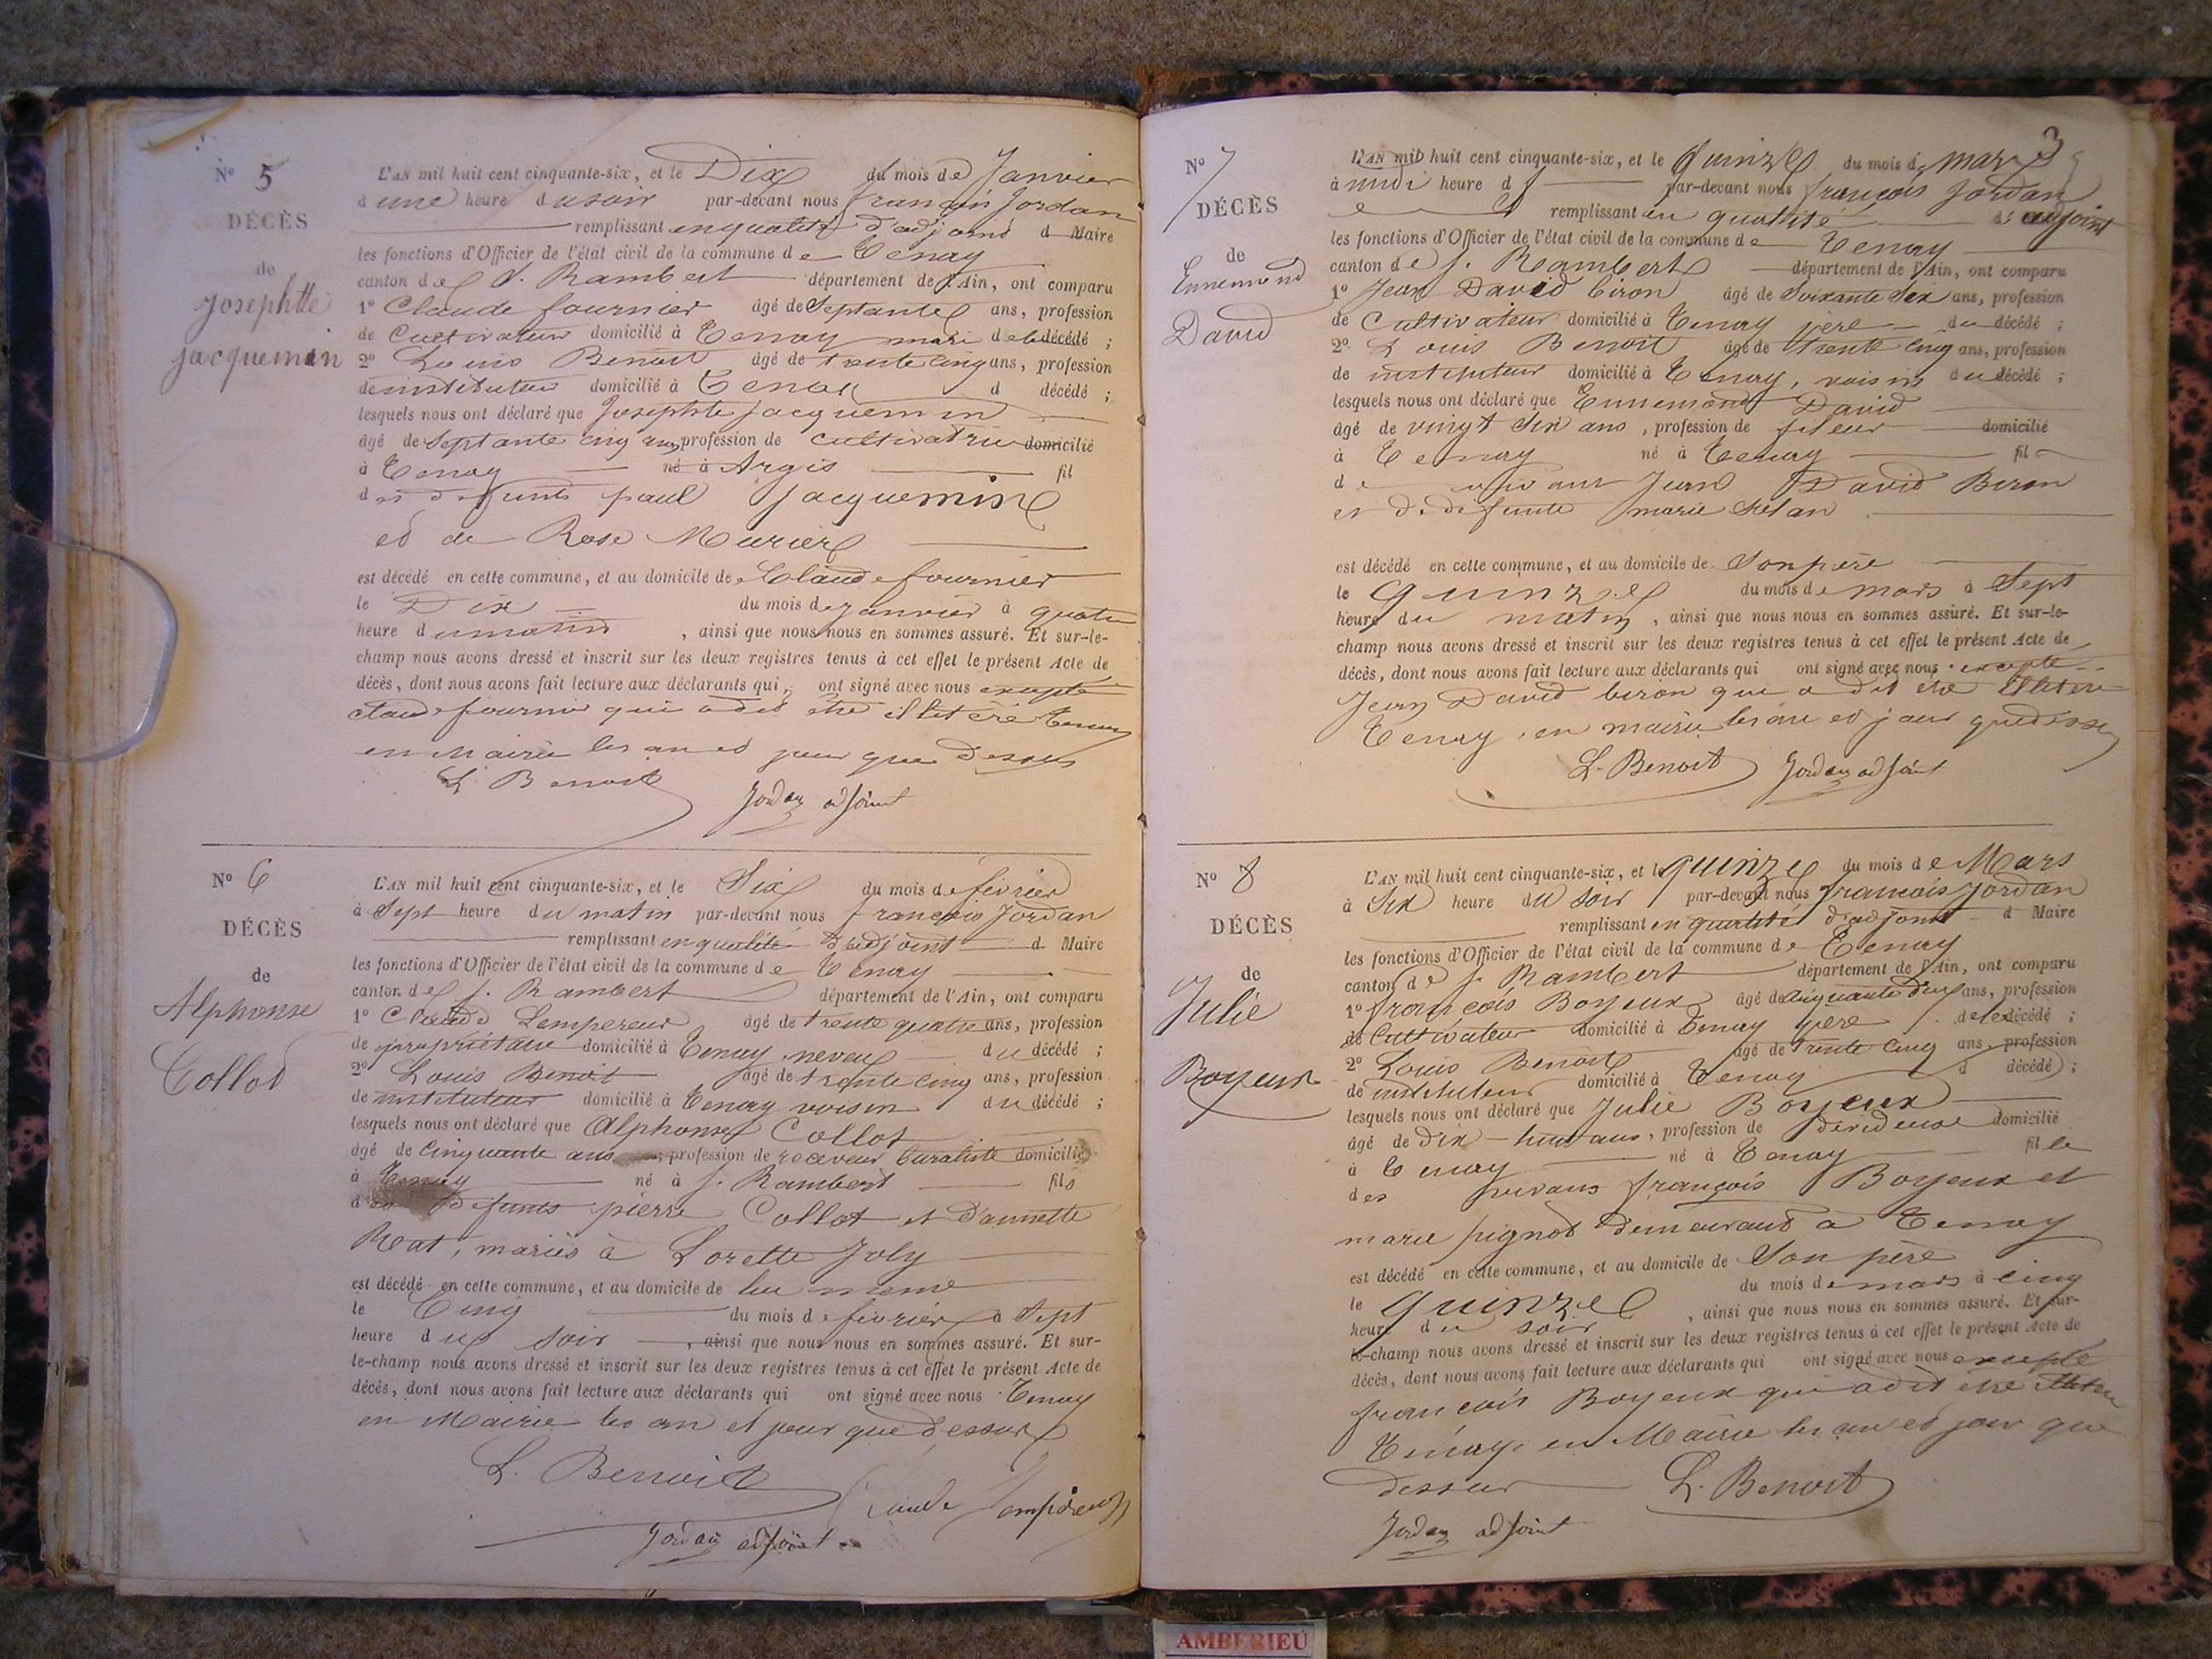 N° 5
DÉCÈS
de
Josephtte
Jacquemin
L'AN mil huit cent cinquante-six, et le Dix du mois de Janvier
à une heure du soir par-devant nous françois Jordan
remplissant en qualité d'adjoint d Maire
les fonctions d'Officier de l'état civil de la commune de Tenay
canton de S. Rambert département de l'Ain, ont comparu
1° Claude fournier âgé de Septante ans, profession
de Cultivateur domicilié à Tenay mari de la décédé ;
2° Louis Benoit âgé de trente cinq ans, profession
de instituteur domicilié à Tenay d décédé ;
lesquels nous ont déclaré que Josephte Jacquemin
âgé de Septante cinq ans, profession de cultivatrice domicilié
à Tenay né à Argis fil
des defunts paul Jacquemin
et de Rose Murier
est décédé en cette commune, et au domicile de Claude fournier
le Dix du mois de janvier à quatre
heure du matin , ainsi que nous nous en sommes assuré. Et sur-le-
champ nous avons dressé et inscrit sur les deux registres tenus à cet effet le présent Acte de
décès, dont nous avons fait lecture aux déclarants qui ont signé avec nous excepté
Claude fournier qui a dit être illitéré Tenay
en Mairie les an et jour que dessus
L. Benoit
Jordan adjoint
N° 6
DÉCÈS
de
Alphonse
Collot
L'AN mil huit cent cinquante-six, et le Six du mois de février
à Sept heure du matin par-devant nous françois Jordan
remplissant en qualité d'adjoint d Maire
les fonctions d'Officier de l'état civil de la commune de Tenay
canton de S. Rambert département de l'Ain, ont comparu
1° Claude Lempereur âgé de trente quatre ans, profession
de propriétaire domicilié à Tenay neveu du décédé ;
2° Louis Benoit âgé de trente cinq ans, profession
de instituteur domicilié à Tenay voisin du décédé ;
lesquels nous ont déclaré que Alphonse Collot
âgé de Cinquante ans profession de receveur buraliste domicilié
à Tenay né à S. Rambert fils
des defunts pierre Collot et d'annette
Rat, mariés à Lorette Joly
est décédé en cette commune, et au domicile de lui meme
le Cinq du mois de février à Sept
heure du soir , ainsi que nous nous en sommes assuré. Et sur-
le-champ nous avons dressé et inscrit sur les deux registres tenus à cet effet le présent Acte de
décès, dont nous avons fait lecture aux déclarants qui ont signé avec nous Tenay
en Mairie les an et jour que dessus
L. Benoit
Claude Lempereur
Jordan adjoint
3
N° 7
DÉCÈS
de
Ennemond
David
L'AN mil huit cent cinquante-six, et le Quinze du mois de mars
à midi heure d par-devant nous françois Jordan
remplissant en qualité d'adjoint
les fonctions d'Officier de l'état civil de la commune de Tenay
canton de S. Rambert département de l'Ain, ont comparu
1° Jean David biron âgé de Soixante Six ans, profession
de Cultivateur domicilié à Tenay père du décédé ;
2° Louis Benoit âgé de trente cinq ans, profession
de instituteur domicilié à Tenay, voisin du décédé ;
lesquels nous ont déclaré que Ennemond David
âgé de vingt Six ans , profession de fileur domicilié
à Tenay né à Tenay fil
de vivant Jean David Biron
et de defunte marie
est décédé en cette commune, et au domicile de Son père
le quinze du mois de mars à Sept
heure du matin , ainsi que nous nous en sommes assuré. Et sur-le-
champ nous avons dressé et inscrit sur les deux registres tenus à cet effet le présent Acte de
décès, dont nous avons fait lecture aux déclarants qui ont signé avec nous excepté
Jean David biron qui a dit être illitéré
Tenay, en mairie les an et jour que dessus
L. Benoit Jordan adjoint
N° 8
DÉCÈS
de
Julie
Boyeux
L'AN mil huit cent cinquante-six, et le quinze du mois de Mars
à Six heure du soir par-devant nous francois Jordan
remplissant en qualité d'adjoint d Maire
les fonctions d'Officier de l'état civil de la commune de Tenay
canton de S. Rambert département de l'Ain, ont comparu
1° françois Boyeux âgé de cinquante deux ans, profession
de Cultivateur domicilié à Tenay père de la décédé ;
2° Louis Benoit âgé de trente cinq ans, profession
de instituteur domicilié à Tenay d décédé ;
lesquels nous ont déclaré que Julie Boyeux
âgé de Dix-huit ans, profession de devideuse domicilié
à Tenay né à Tenay fille
des vivans françois Boyeux et
marie pignot demeurant à Tenay
est décédé en cette commune, et au domicile de Son père
le quinze du mois de mars à cinq
heure du soir , ainsi que nous nous en sommes assuré. Et sur-
le-champ nous avons dressé et inscrit sur les deux registres tenus à cet effet le présent Acte de
décès, dont nous avons fait lecture aux déclarants qui ont signé avec nous excepté
françois Boyeux qui a dit être illitéré
Tenay, en Mairie les an et jour que
dessus L. Benoit
Jordan adjoint
AMBERIEU